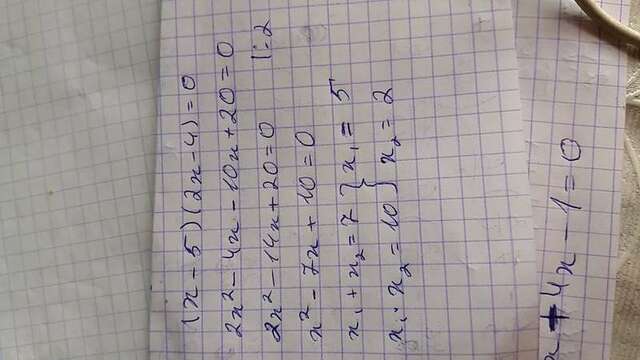 (x-5)(2x-4)=0
2x²-4x-10x+20=0
2x²-14x+20=0 |:2
x²-7x+10=0
x₁+x₂=7 } x₁=5
x₁·x₂=10 } x₂=2
x+4x-1=0